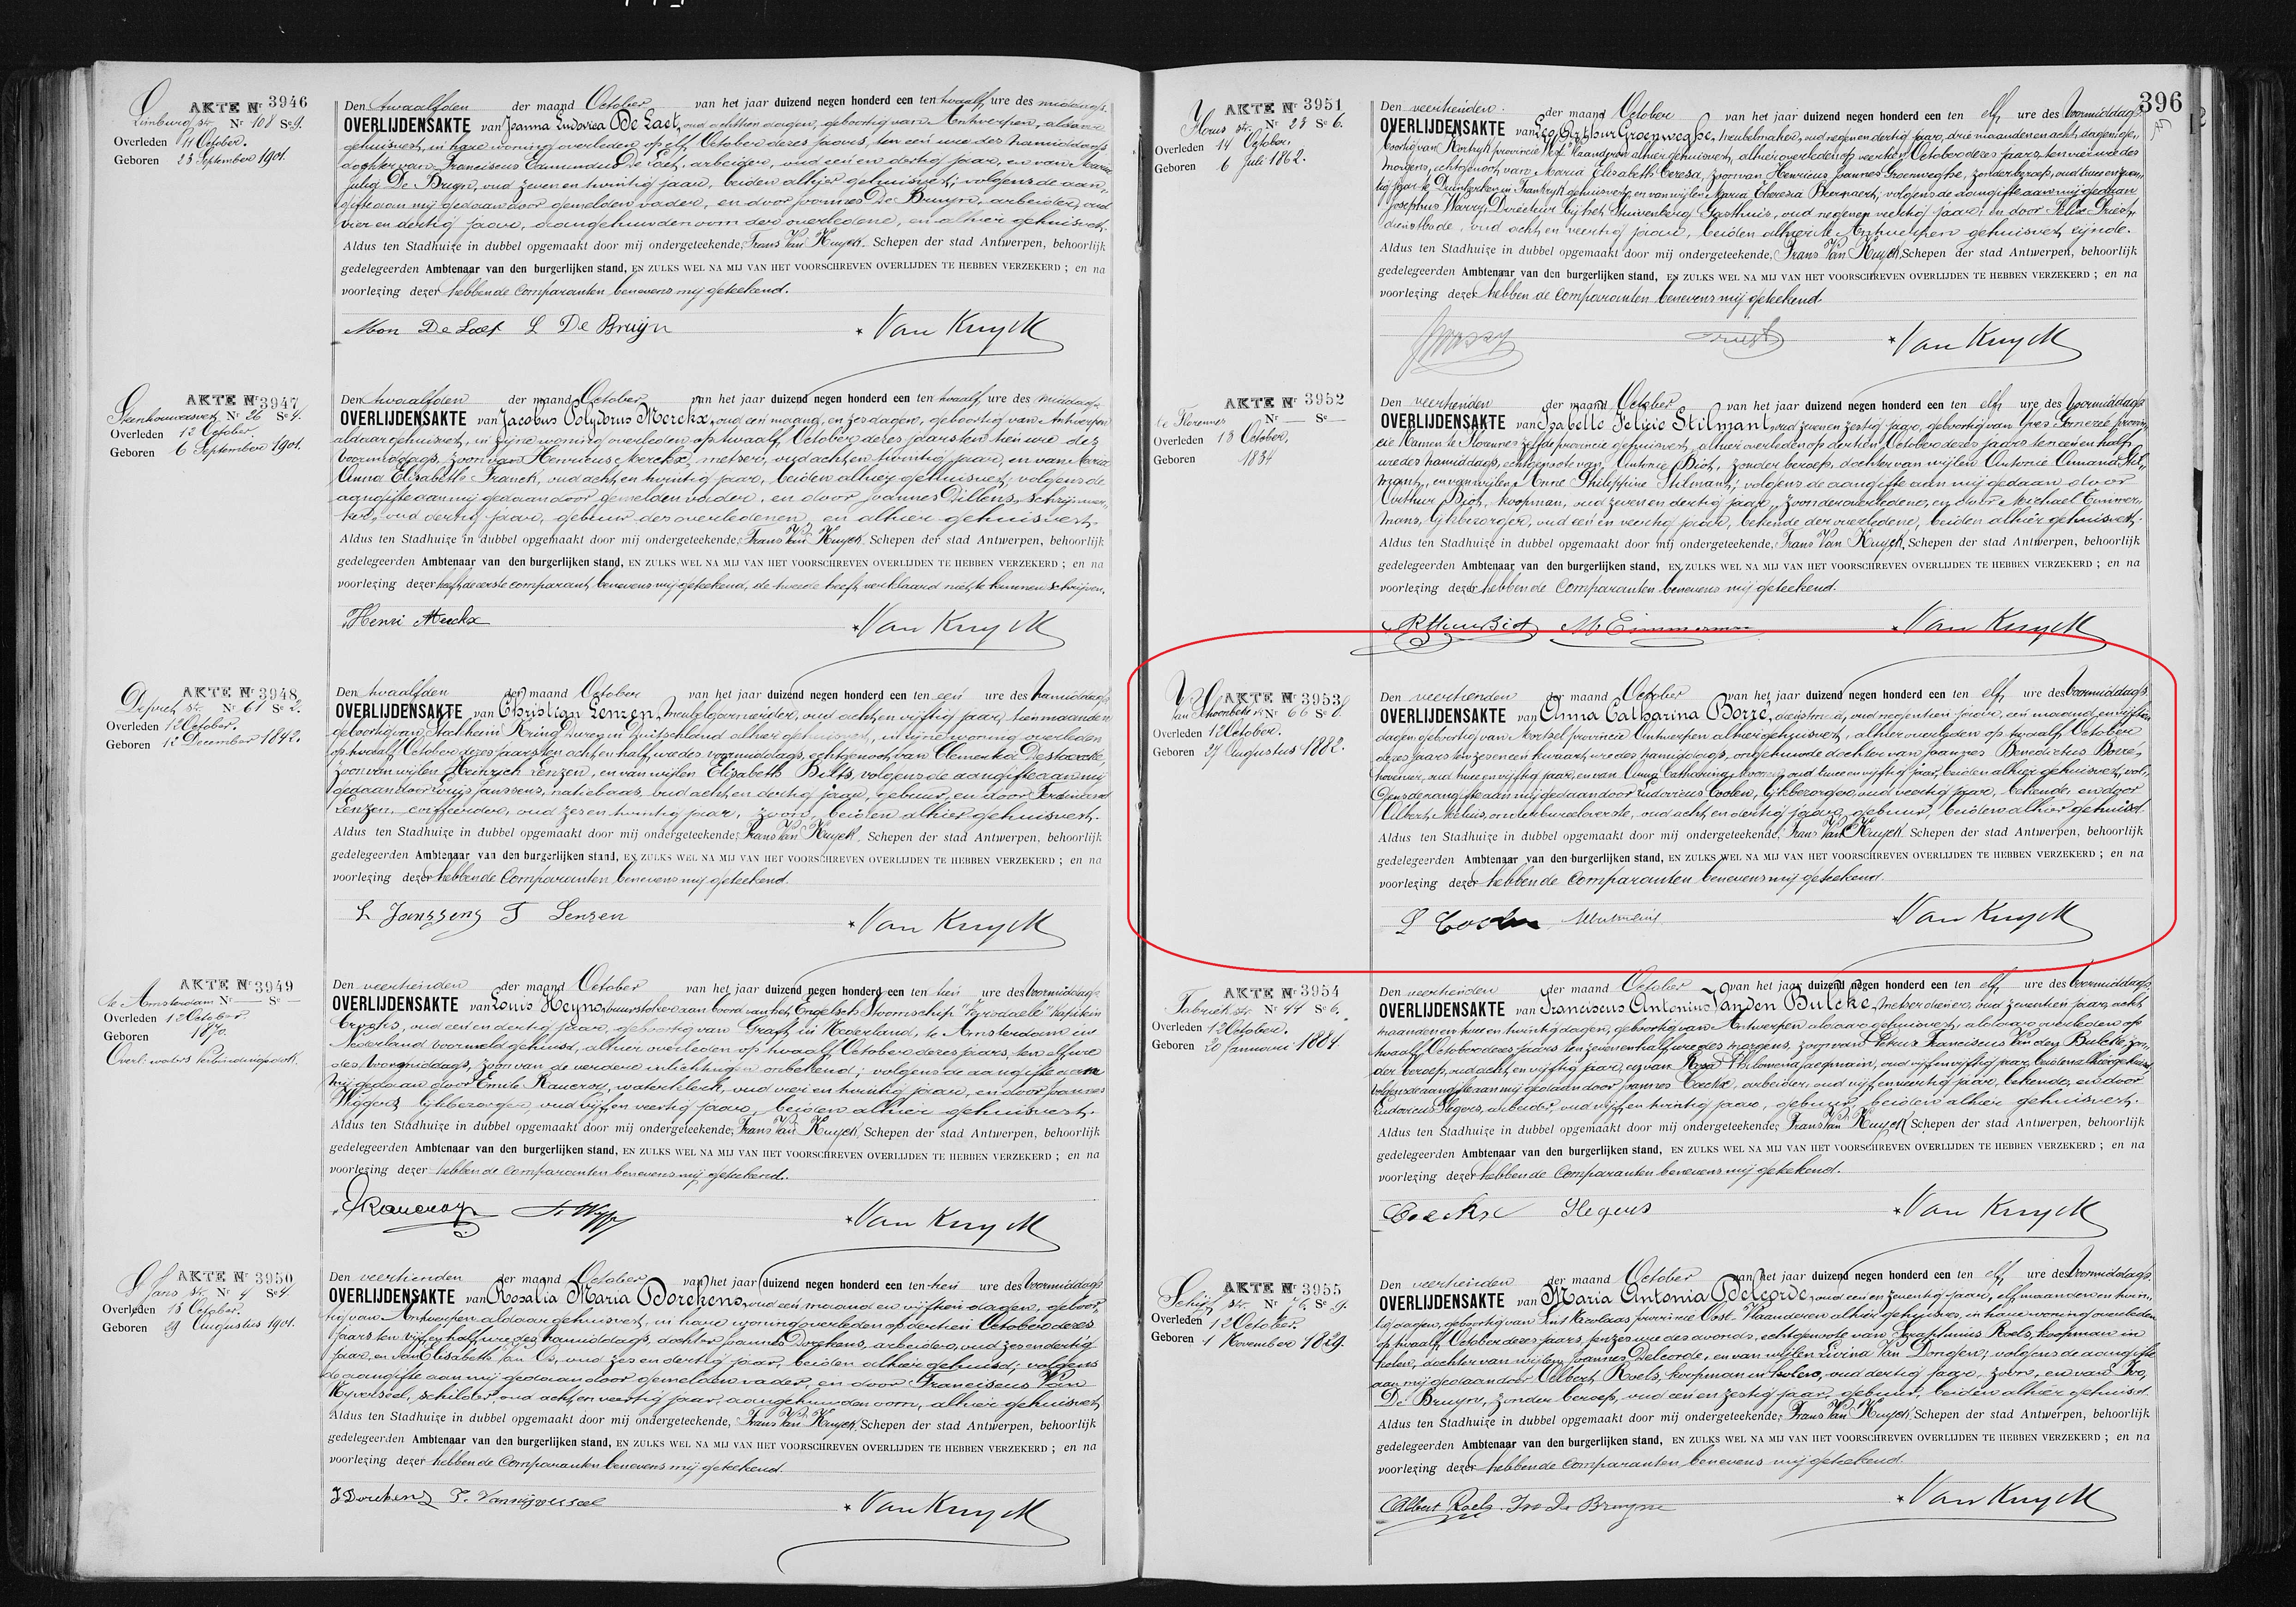 AKTE Nr 3946
Limburg str. Nr 108 Se 9.
Overleden 11 October.
Geboren 23 September 1901.
Den twaalfden der maand October van het jaar duizend negen honderd een ten twaalf ure des middags.
OVERLIJDENSAKTE van Joanna Ludovica De Laet, oud achttien dagen, geboortig van Antwerpen, aldaar
gehuisvest, in hare woning overleden op elf October dezes jaars, ten een ure des namiddags
dochter van Franciscus Edmundus De Laet, arbeider, oud een en dertig jaar, en van Maria
Julia De Bruyn, oud zeven en twintig jaar, beiden alhier gehuisvest; volgens de aan-
gifte aan mij gedaan door gemelden vader, en door Joannes De Bruyn, arbeider, oud
vier en dertig jaar, aangehuwden oom der overledene, en alhier gehuisvest.
Aldus ten Stadhuize in dubbel opgemaakt door mij ondergeteekende, Frans Van Kuyck Schepen der stad Antwerpen, behoorlijk
gedelegeerden Ambtenaar van den burgerlijken stand, EN ZULKS WEL NA MIJ VAN HET VOORSCHREVEN OVERLIJDEN TE HEBBEN VERZEKERD ; en na
voorlezing dezer hebben de Comparanten benevens mij geteekend.
Mon De Laet L De Bruijn Van Kuyck
AKTE Nr 3947
Steenhouwersvest Nr 26 Se 4.
Overleden 12 October.
Geboren 6 September 1901.
Den twaalfden der maand October van het jaar duizend negen honderd een ten twaalf ure des middags
OVERLIJDENSAKTE van Jacobus Polydrus Merckx, oud een maand en zes dagen, geboortig van Antwerpen
aldaar gehuisvest, in zijne woning overleden op twaalf October dezes jaars ten tien ure des
voormiddags, zoon van Henricus Merckx, metser, oud acht en twintig jaar, en van Maria
Anna Elisabeth Franck, oud acht en twintig jaar, beiden alhier gehuisvest, volgens de
aangifte aan mij gedaan door gemelden vader, en door Joannes Dillens, schrijnwer-
ker, oud dertig jaar, gebuur des overledenen, en alhier gehuisvest.
Aldus ten Stadhuize in dubbel opgemaakt door mij ondergeteekende, Frans Van Kuyck Schepen der stad Antwerpen, behoorlijk
gedelegeerden Ambtenaar van den burgerlijken stand, EN ZULKS WEL NA MIJ VAN HET VOORSCHREVEN OVERLIJDEN TE HEBBEN VERZEKERD ; en na
voorlezing dezer heeft de eerste comparant benevens mij geteekend, de tweede heeft verklaard niet te kunnen schrijven.
Henri Merckx Van Kuyck
AKTE Nr 3948
Nr 61 Se 2.
Overleden 12 October.
Geboren 12 December 1842.
Den twaalfden der maand October van het jaar duizend negen honderd een ten een ure des namiddags
OVERLIJDENSAKTE van Christian Lenzen, oud acht en vijftig jaar, tien maanden
geboortig van Stockheim Kring Duren in Duitschland alhier gehuisvest, in zijne woning overleden
op twaalf October dezes jaars ten acht en half ure des voormiddags, echtgenoot van Clementia Destaercke,
zoon van wijlen Heinrich Lenzen, en van wijlen Elizabeth Bilts, volgens de aangifte aan mij
gedaan door Louis Janssens, natiebaas, oud acht en dertig jaar, gebuur, en door Ferdinand
Lenzen, coiffeerder, oud zes en twintig jaar, zoon, beiden alhier gehuisvest.
Aldus ten Stadhuize in dubbel opgemaakt door mij ondergeteekende, Frans Van Kuyck Schepen der stad Antwerpen, behoorlijk
gedelegeerden Ambtenaar van den burgerlijken stand, EN ZULKS WEL NA MIJ VAN HET VOORSCHREVEN OVERLIJDEN TE HEBBEN VERZEKERD ; en na
voorlezing dezer hebben de Comparanten benevens mij geteekend.
L Janssens F Lenzen Van Kuyck
AKTE Nr 3949
te Amsterdam Nr — Se —
Overleden 12 October.
Geboren 1870.
Overl: waters Verbindingsdok.
Den veertienden der maand October van het jaar duizend negen honderd een ten tien ure des voormiddags
OVERLIJDENSAKTE van Louis Heyns, vuurstoker aan boord van het Engelsch Stoomschip kapitein
oud een en dertig jaar, geboortig van Graft in Nederland, te Amsterdam in
Nederland voormeld gehuisd, alhier overleden op twaalf October dezes jaars, ten elf ure
des voormiddags, zoon van de verdere inlichtingen onbekend; volgens de aangifte aan
mij gedaan door Emile Raueroy, waterklerk, oud vier en twintig jaar, en door Joannes
Wiggers lijkbezorger, oud vijf en veertig jaar, beiden alhier gehuisvest.
Aldus ten Stadhuize in dubbel opgemaakt door mij ondergeteekende, Frans Van Kuyck Schepen der stad Antwerpen, behoorlijk
gedelegeerden Ambtenaar van den burgerlijken stand, EN ZULKS WEL NA MIJ VAN HET VOORSCHREVEN OVERLIJDEN TE HEBBEN VERZEKERD ; en na
voorlezing dezer hebben de Comparanten benevens mij geteekend.
Van Kuyck
AKTE Nr 3950
St Jans str. Nr 4 Se 4.
Overleden 13 October.
Geboren 29 Augustus 1901.
Den veertienden der maand October van het jaar duizend negen honderd een ten tien ure des voormiddags
OVERLIJDENSAKTE van Rosalia Maria Dorekens, oud een maand en vijftien dagen, geboor-
tig van Antwerpen aldaar gehuisvest, in hare woning overleden op dertien October dezes
jaars ten vijf en half ure des namiddags, dochter Joannes Dorekens, arbeider, oud zes en dertig
jaar, en van Elisabeth Van Os, oud zes en dertig jaar, beiden alhier gehuisd; volgens
de aangifte aan mij gedaan door gemelden vader, en door Franciscus Van
Nyverseel, schilder, oud acht en veertig jaar, aangehuwden oom, alhier gehuisvest
Aldus ten Stadhuize in dubbel opgemaakt door mij ondergeteekende, Frans Van Kuyck Schepen der stad Antwerpen, behoorlijk
gedelegeerden Ambtenaar van den burgerlijken stand, EN ZULKS WEL NA MIJ VAN HET VOORSCHREVEN OVERLIJDEN TE HEBBEN VERZEKERD ; en na
voorlezing dezer hebben de Comparanten benevens mij geteekend.
J Dorekens Van Kuyck
396
AKTE Nr 3951
Nr 23 Se 6.
Overleden 14 October.
Geboren 6 Juli 1862.
Den veertienden der maand October van het jaar duizend negen honderd een ten elf ure des voormiddags
OVERLIJDENSAKTE van Leo Arthur Groenweghe, meubelmaker, oud negen en dertig jaar, drie maanden en acht dagen, ge-
boortig van Kortryk provincie West Vlaanderen alhier gehuisvest, alhier overleden op veertien October dezes jaars, ten vier ure des
morgens, echtgenoot van Maria Elisabeth Ceresa, zoon van Henricus Joannes Groenweghe, zonder beroep, oud
jaar te Duinkerken in Frankryk gehuisvest, en van wijlen Maria Theresia Beernaert; volgens de aangifte aan mij gedaan
Josephus Warry, Directeur bij het Stuivenberg Gasthuis, oud negen en veertig jaar; en door Felix Driest,
dienstbode, oud acht en veertig jaar, beiden alhier te Antwerpen gehuisvest zijnde.
Aldus ten Stadhuize in dubbel opgemaakt door mij ondergeteekende, Frans Van Kuyck Schepen der stad Antwerpen, behoorlijk
gedelegeerden Ambtenaar van den burgerlijken stand, EN ZULKS WEL NA MIJ VAN HET VOORSCHREVEN OVERLIJDEN TE HEBBEN VERZEKERD ; en na
voorlezing dezer hebben de Comparanten benevens mij geteekend.
Van Kuyck
AKTE Nr 3952
te Florennes Nr — Se —
Overleden 13 October.
Geboren 1834
Den veertienden der maand October van het jaar duizend negen honderd een ten elf ure des voormiddags
OVERLIJDENSAKTE van Isabelle Félicie Stilmant, oud zeven en zestig jaar, geboortig van Yves Gomerie provin-
cie Namen te Florennes zelfde provincie gehuisvest, alhier overleden op dertien October dezes jaars ten een en half
ure des namiddags, echtgenoote van Antoine Biot, zonder beroep, dochter van wijlen Antoine Amand Stil-
mant, en van wijlen Anne Philippine Stilmant; volgens de aangifte aan mij gedaan door
Arthur Biot, koopman, oud zeven en dertig jaar, zoon der overledene, en door Michael Emmer-
mans, lijkbezorger, oud een en veertig jaar, bekende der overledene, beiden alhier gehuisvest.
Aldus ten Stadhuize in dubbel opgemaakt door mij ondergeteekende, Frans Van Kuyck Schepen der stad Antwerpen, behoorlijk
gedelegeerden Ambtenaar van den burgerlijken stand, EN ZULKS WEL NA MIJ VAN HET VOORSCHREVEN OVERLIJDEN TE HEBBEN VERZEKERD ; en na
voorlezing dezer hebben de Comparanten benevens mij geteekend.
Arthur Biot Van Kuyck
AKTE Nr 3953
Van Schoonbeke str. Nr 66 Se 6.
Overleden 12 October.
Geboren 27 Augustus 1882.
Den veertienden der maand October van het jaar duizend negen honderd een ten elf ure des voormiddags
OVERLIJDENSAKTE van Anna Catharina Borré, dienstmeid, oud negentien jaar, een maand en vijftien
dagen, geboortig van Mortsel provincie Antwerpen alhier gehuisvest, alhier overleden op twaalf October
dezes jaars ten zes en een kwaart ure des namiddags, ongehuwde dochter van Joannes Benedictus Borré,
hovenier, oud twee en vijftig jaar, en van Anna Catharina oud twee en vijftig jaar, beiden alhier gehuisvest, vol-
gens de aangifte aan mij gedaan door Ludovicus Coolen, lijkbezorger, oud veertig jaar, bekende, en door
Albert Melius, onderbureeloverste, oud acht en dertig jaar, gebuur, beiden alhier gehuisd.
Aldus ten Stadhuize in dubbel opgemaakt door mij ondergeteekende, Frans Van Kuyck Schepen der stad Antwerpen, behoorlijk
gedelegeerden Ambtenaar van den burgerlijken stand, EN ZULKS WEL NA MIJ VAN HET VOORSCHREVEN OVERLIJDEN TE HEBBEN VERZEKERD ; en na
voorlezing dezer hebben de Comparanten benevens mij geteekend.
L Coolen Van Kuyck
AKTE Nr 3954
Fabriek str. Nr 44 Se 6.
Overleden 12 October.
Geboren 20 Januari 1884.
Den veertienden der maand October van het jaar duizend negen honderd een ten elf ure des voormiddags
OVERLIJDENSAKTE van Franciscus Antonius Van den Bulcke, metserdiener, oud zeventien jaar, acht
maanden en twee en twintig dagen, geboortig van Antwerpen aldaar gehuisvest, aldaar overleden op
twaalf October dezes jaars ten zeven en half ure des morgens, zoon van Petrus Franciscus Van den Bulcke, zon-
der beroep, oud acht en vijftig jaar, en van Rosa Philomena Jacqmain, oud vijf en vijftig jaar, beiden alhier gehuisvest,
volgens de aangifte aan mij gedaan door Joannes Coeckx, arbeider, oud vijf en veertig jaar, bekende, en door
Ludovicus Slegers, arbeider, oud vijf en twintig jaar, gebuur, beiden alhier gehuisvest.
Aldus ten Stadhuize in dubbel opgemaakt door mij ondergeteekende, Frans Van Kuyck Schepen der stad Antwerpen, behoorlijk
gedelegeerden Ambtenaar van den burgerlijken stand, EN ZULKS WEL NA MIJ VAN HET VOORSCHREVEN OVERLIJDEN TE HEBBEN VERZEKERD ; en na
voorlezing dezer hebben de Comparanten benevens mij geteekend.
Coeckx Slegers Van Kuyck
AKTE Nr 3955
Schip str. Nr 76 Se 9.
Overleden 12 October.
Geboren 1 November 1829.
Den veertienden der maand October van het jaar duizend negen honderd een ten elf ure des voormiddags
OVERLIJDENSAKTE van Maria Antonia Delcorde, oud een en zeventig jaar, elf maanden en twin-
tig dagen, geboortig van Sint Nicolaas provincie Oost Vlaanderen alhier gehuisvest, in hare woning overleden
op twaalf October dezes jaars, ten zes ure des avonds, echtgenoote van Seraphinus Roels, koopman in
kolen, dochter van wijlen Joannes Delcorde, en van wijlen Livina Van Dongen; volgens de aangifte
aan mij gedaan door Albert Roels, koopman in kolen, oud dertig jaar, zoon, en van Ivo
De Bruyn, zonder beroep, oud een en zestig jaar, gebuur, beiden alhier gehuisd.
Aldus ten Stadhuize in dubbel opgemaakt door mij ondergeteekende, Frans Van Kuyck Schepen der stad Antwerpen, behoorlijk
gedelegeerden Ambtenaar van den burgerlijken stand, EN ZULKS WEL NA MIJ VAN HET VOORSCHREVEN OVERLIJDEN TE HEBBEN VERZEKERD ; en na
voorlezing dezer hebben de Comparanten benevens mij geteekend.
Albert Roels. Ivo De Bruyn Van Kuyck